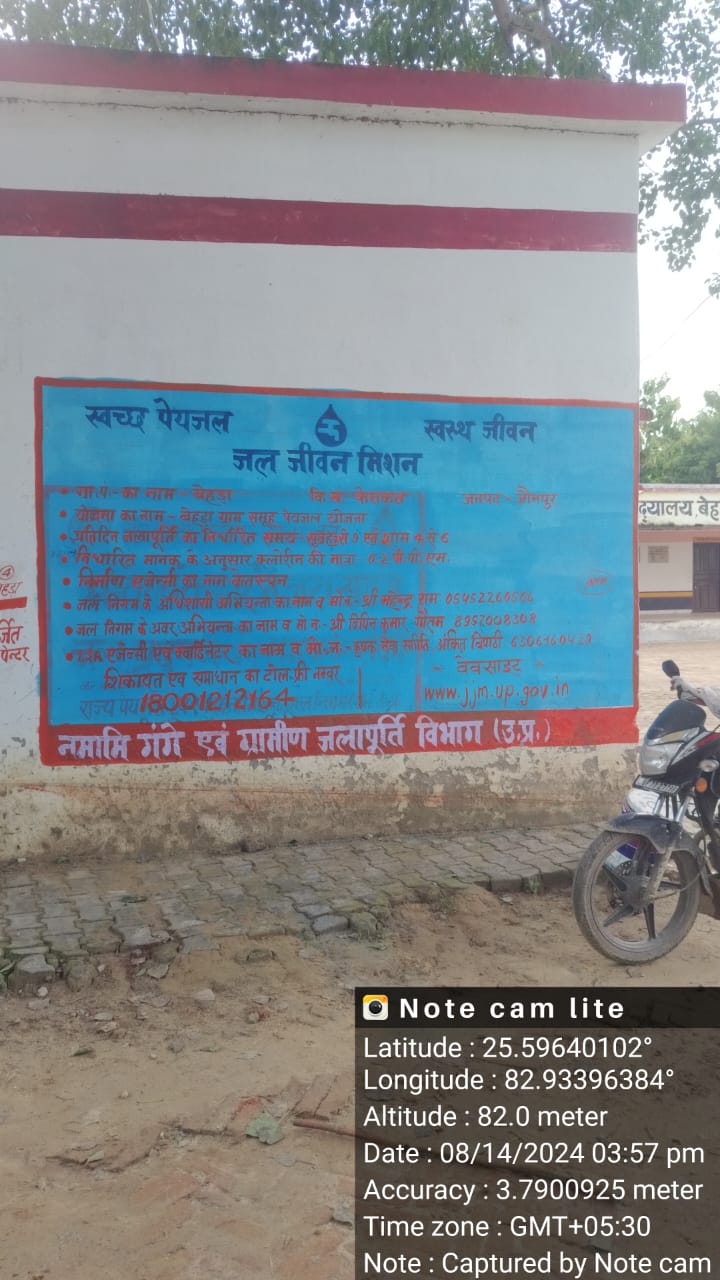 स्वच्छ पेयजल
स्वस्थ जीवन
जल जीवन मिशन
• ग्रा.पं.-का नाम - बेहड़ा वि.ख. केराकत जनपद - जौनपुर
• योजना का नाम - बेहड़ा ग्राम समूह पेयजल योजना
• प्रतिदिन जलापूर्ति का निर्धारित समय - सुबह 9 एवं शाम 4 से 6
• निर्धारित मानक के अनुसार क्लोरीन की मात्रा 0.2 पी.पी.एम.
• निर्माण एजेन्सी का नाम
• जल निगम के अधिशासी अभियन्ता का नाम व मो.न.- श्री महेन्द्र राम 05452260586
• जल निगम के अवर अभियन्ता का नाम व मो न - श्री विपिन कुमार गौतम 8957008308
• एजेन्सी एवं क्वार्डिनेटर का नाम व मो.न.- कृषक सेवा समिति अंकित त्रिपाठी 6306160429
शिकायत एवं समाधान का टोल फ्री नम्बर
- वेबसाइट -
18001212164
www.jjm.up.gov.in
नमामि गंगे एवं ग्रामीण जलापूर्ति विभाग (उ.प्र.)
द्यालय, बेह
4
पेन्टर
Note cam lite
Latitude : 25.59640102°
Longitude : 82.93396384°
Altitude : 82.0 meter
Date : 08/14/2024 03:57 pm
Accuracy : 3.7900925 meter
Time zone : GMT+05:30
Note : Captured by Note cam